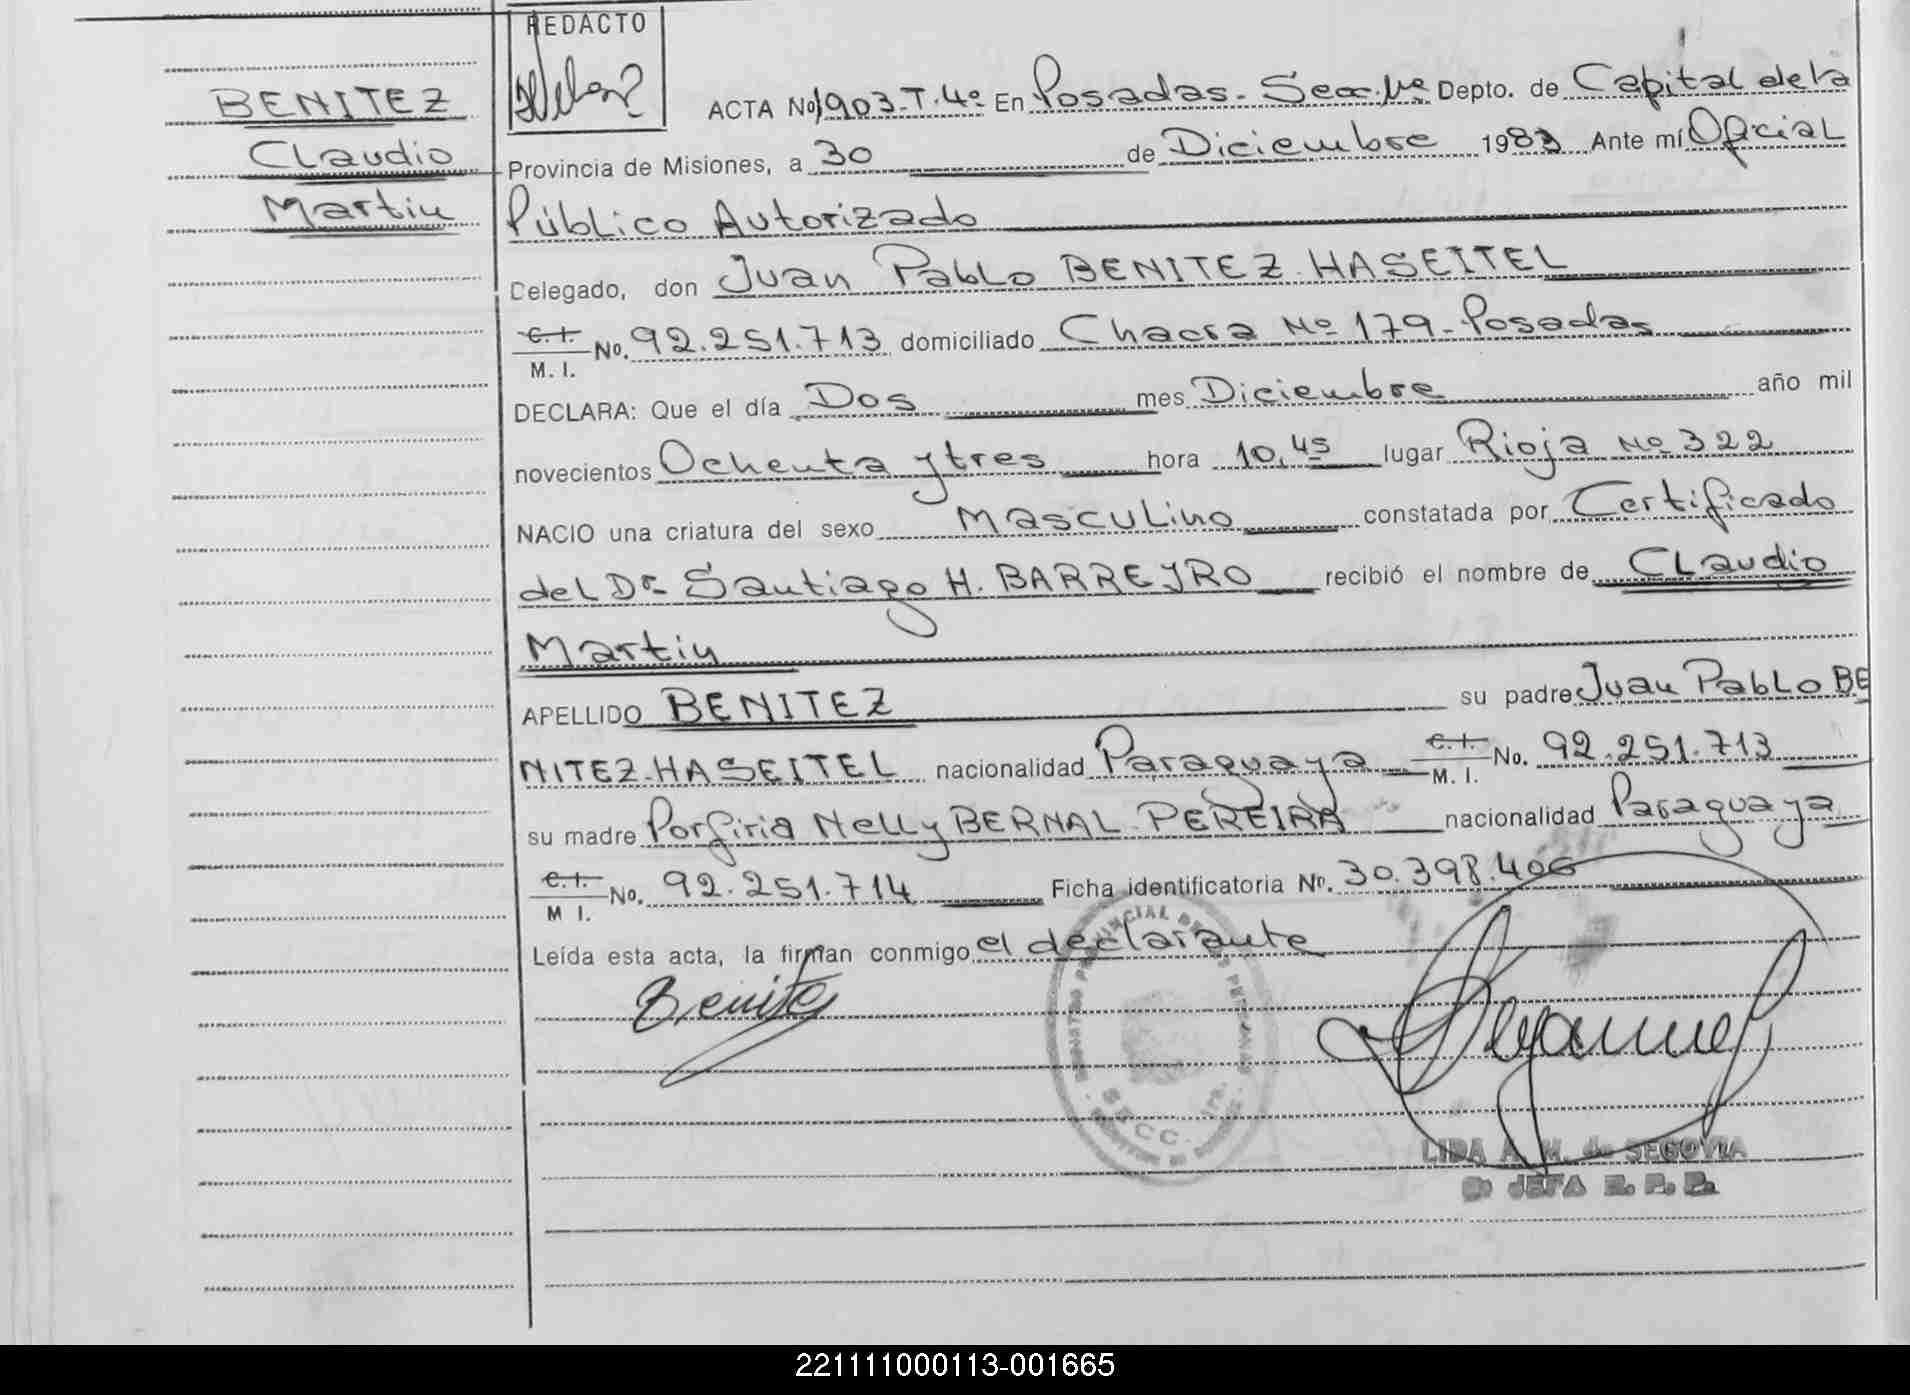 REDACTO
BENITEZ
Claudio
Martin
ACTA No 1903-T.4º En Posadas- Secc. 1ª Depto. de Capital de la
Provincia de Misiones, a 30 de Diciembre 1983 Ante mí Oficial
Público Autorizado
Delegado, don Juan Pablo BENITEZ-HASEITEL
C.I. M. I. No. 92.251.713 domiciliado Chacra Nº 179-Posadas
DECLARA: Que el día Dos mes Diciembre año mil
novecientos Ochenta y tres hora 10,45 lugar Rioja Nº 322
NACIO una criatura del sexo Masculino constatada por Certificado
del Dr- Santiago H. BARREYRO recibió el nombre de Claudio
Martin
APELLIDO BENITEZ su padre Juan Pablo BE
NITEZ-HASEITEL nacionalidad Paraguaya C.I. M. I. No. 92.251.713
su madre Porfiria Nelly BERNAL-PEREIRA nacionalidad Paraguaya
C.I. M I. No. 92.251.714 Ficha identificatoria Nº. 30.398.406
Leída esta acta, la firman conmigo el declarante
Benitez
REGISTRO PROVINCIAL DE LAS PERSONAS
SECC. 1ra.
LIDA A. M. de SEGOVIA
JEFA R. P. P.
221111000113-001665